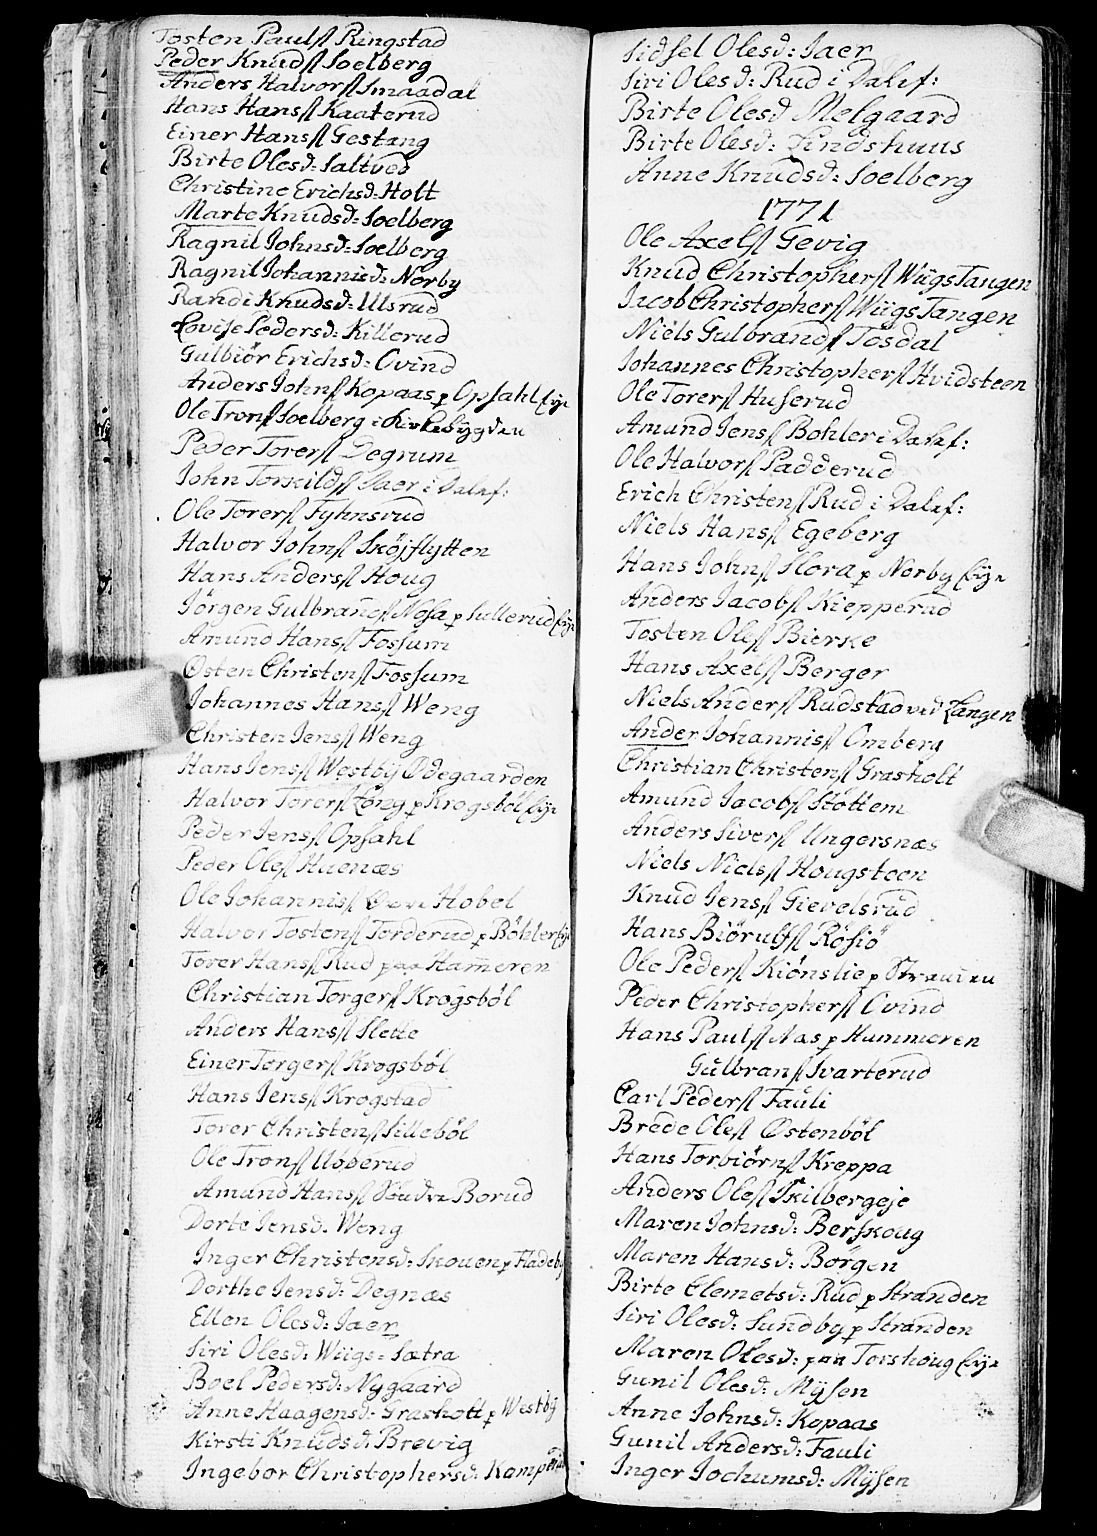 Tosten Paulsſ Ringstad
Peder Knudsſ Soelberg
Anders Halvorsſ Smaadal
Hans Hansſ Kaaterud
Einer Hansſ Gestang
Birte Olesd: Saltved
Christine Erichsd: Holt
Marte Knudsd: Soelberg
Ragnil Johnsd: Soelberg
Ragnil Johannisd: Norby
Randi Knudsd: Ulsrud
Lovise Pedersd: Killerud
Gulbiör Erichsd: Ovind
Anders Johnsſ Kopaas p Opsahl Eije
Ole Tronsſ Soelberg i Kirkebÿgden
Peder Torersſ Degrum
John Torkildsſ Jaer i Dalef:
Ole Torersſ Fyhnsrud
Halvor Johnsſ Sköjflytten
Hans Andersſ Houg
Jörgen Gulbrandsſ Nosa p Sullerud Eije
Amund Hansſ Fossum
Osten Christensſ Fossum
Johannes Hansſ Weng
Christen Jensſ Weng
Hans Jensſ Westbÿ Ødegaarden
Halvor Torersſ Eöng p Krogsböl Eije
Peder Jensſ Opsahl
Peder Olesſ Huenæs
Ole Johannisſ Hobel
Halvor Tostensſ Torderud p Böhler Eije
Torer Hansſ Rud paa Hameren
Christian Torgersſ Krogsböl
Anders Hansſ Slette
Einer Torgersſ Krogsböl
Hans Jensſ Krogstad
Torer Christensſ Silleböl
Ole Tronsſ Usberud
Amund Hansſ Söndre Borud
Dorte Jensd: Weng
Inger Christensd: Skouen p Fladebÿ
Dorthe Jensd: Degnæs
Ellen Olesd: Jaer
Siri Olesd: Wiigs-Sætra
Boel Pedersd: Nygaard
Anne Haagensd: Grasholt p Westbÿ
Kirsti Knudsd: Brevig
Ingebor Christophersd: Kamperud
Sidsel Olesd: Jaer
Siri Olesd: Rud i Dalef:
Birte Olesd Melgaard
Birte Olesd: Lindshuus
Anne Knudsd: Soelberg
1771
Ole Axelsſ Gevig
Knud Christophersſ WiigsTangen
Jacob Christophersſ WiigsTangen
Niels Gulbrandsſ Tosdal
Johannes Christophersſ Hvidsteen
Ole Torersſ Huserud
Amund Jensſ Bohler i Dalef:
Ole Halvorsſ Padderud
Erich Christensſ Rud i Dalef:
Niels Hansſ Egeberg
Hans Johnsſ Slora p Norby Eije
Anders Jacobsſ Kiepperud
Tosten Olesſ Bierke
Hans Axelsſ Berger
Niels Andersſ Rudstad ved Langen
Ander Johannisſ Omberg
Christian Christensſ Grasholt
Amund Jacobsſ Stottem
Anders Siversſ Ungersnæs
Niels Nielsſ Hougsteen
Knud Jensſ Gievelsrud
Hans Biörulfsſ Rösiö
Ole Pedersſ Kiönslie p Stranden
Peder Christophersſ Ovind
Hans Paulsſ Nas p Hammeren
Gulbransſ Svarterud
Carl Pedersſ Fauli
Brede Olesſ Østenböl
Hans Torbiörnsſ Kreppa
Anders Olesſ Skilbergeje
Maren Johnsd: Berskoug
Maren Hansd: Börgen
Birte Clemetsd: Rud p Stranden
Siri Olesd: Sundby p Stranden
Maren Olesd: paa Torshoug Eije
Gunil Olesd: Mÿsen
Anne Johnsd: Kopaas
Gunil Andersd: Fauli
Inger Jochumsd: Mÿsen